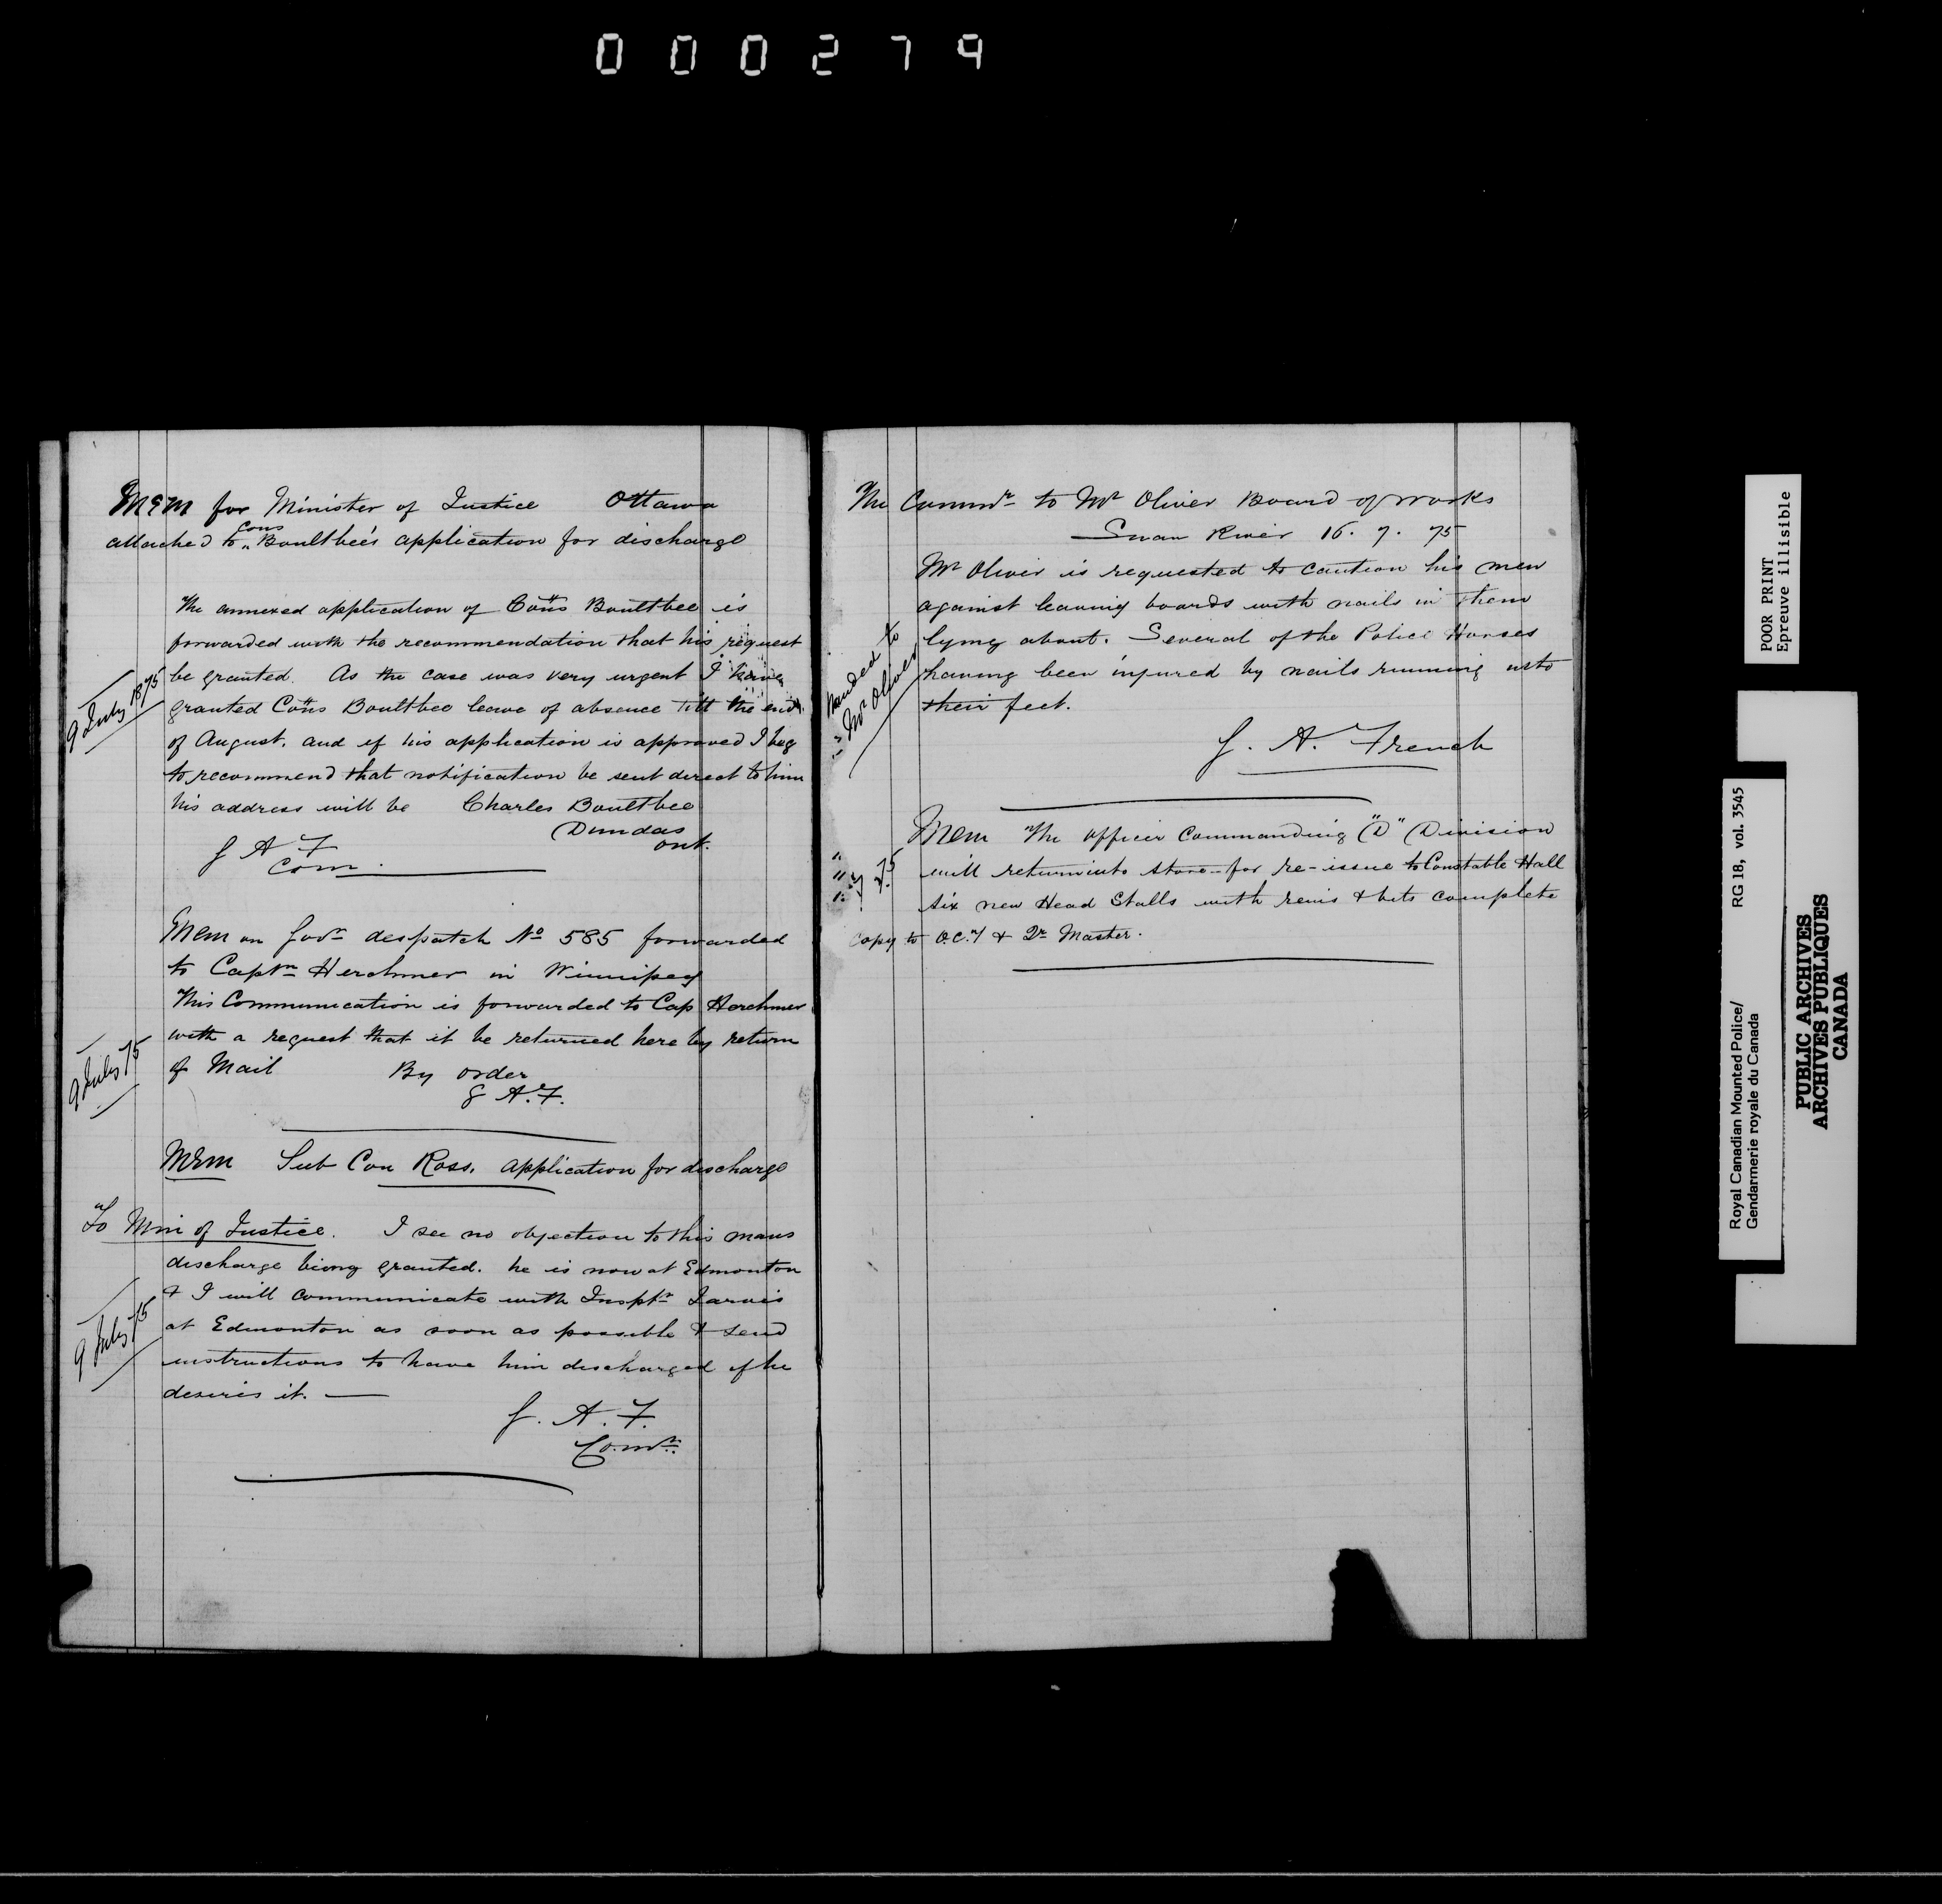 000279
Mem for Minister of Justice Ottawa
attached to Cons Boultbee's application for discharge
The annexed application of Cons Boultbee is
forwarded with the recommendation that his request
be granted. As the case was very urgent I have
granted Cons Boultbee leave of absence till the end
of August. and if his application is approved I beg
to recommend that notification be sent direct to him
his address will be Charles Boultbee
Dundas
Ont.
9 July 1875
G A F
Com.
Mem on Govr despatch No 585 forwarded
to Captn Herchmer in Winnipeg
This Communication is forwarded to Cap Herchmer
with a request that it be returned here by return
of Mail By order
G A. F.
9 July 75
Mem Sub Con Ross. application for discharge
To Min of Justice. I see no objection to this mans
discharge being granted. he is now at Edmonton
& I will communicate with Insptr Jarvis
at Edmonton as soon as possible & send
instructions to have him discharged if he
desires it. —
9 July 75
G. A. F.
Comr.
The Commr to Mr Oliver Board of Works
Swan River 16. 7. 75
Mr Oliver is requested to caution his men
against leaving boards with nails in them
lying about. Several of the Police Horses
having been injured by nails running into
their feet.
handed to
Mr Oliver
G. A. French
Mem The officer Commanding "D" Division
will return into store for re-issue to Constable Hall
six new Head Stalls with reins & bits complete
Copy to O.C. & Qr Master.
POOR PRINT
Epreuve illisible
Royal Canadian Mounted Police/ RG 18, vol. 3545
Gendarmerie royale du Canada
PUBLIC ARCHIVES
ARCHIVES PUBLIQUES
CANADA